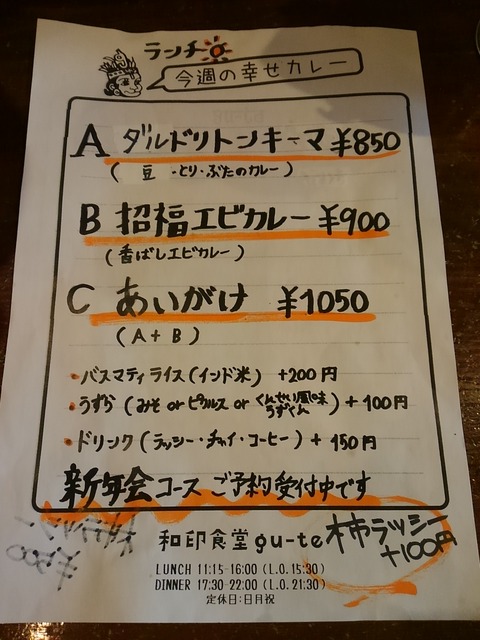 ランチ
今週の幸せカレー
A ダルドリトンキーマ ¥850
(豆・とり・ぶたのカレー)
B 招福エビカレー ¥900
(香ばしエビカレー)
C あいがけ ¥1050
(A+B)
・バスマティライス(インド米) +200円
・うずら(みそ or ピクルス or くんせい風味うずくん) +100円
・ドリンク(ラッシー・チャイ・コーヒー) + 150円
新年会コース ご予約受付中です
柿ラッシー
+100円
和印食堂 gu-te
LUNCH 11:15-16:00 (L.O.15:30)
DINNER 17:30-22:00 (L.O.21:30)
定休日:日月祝